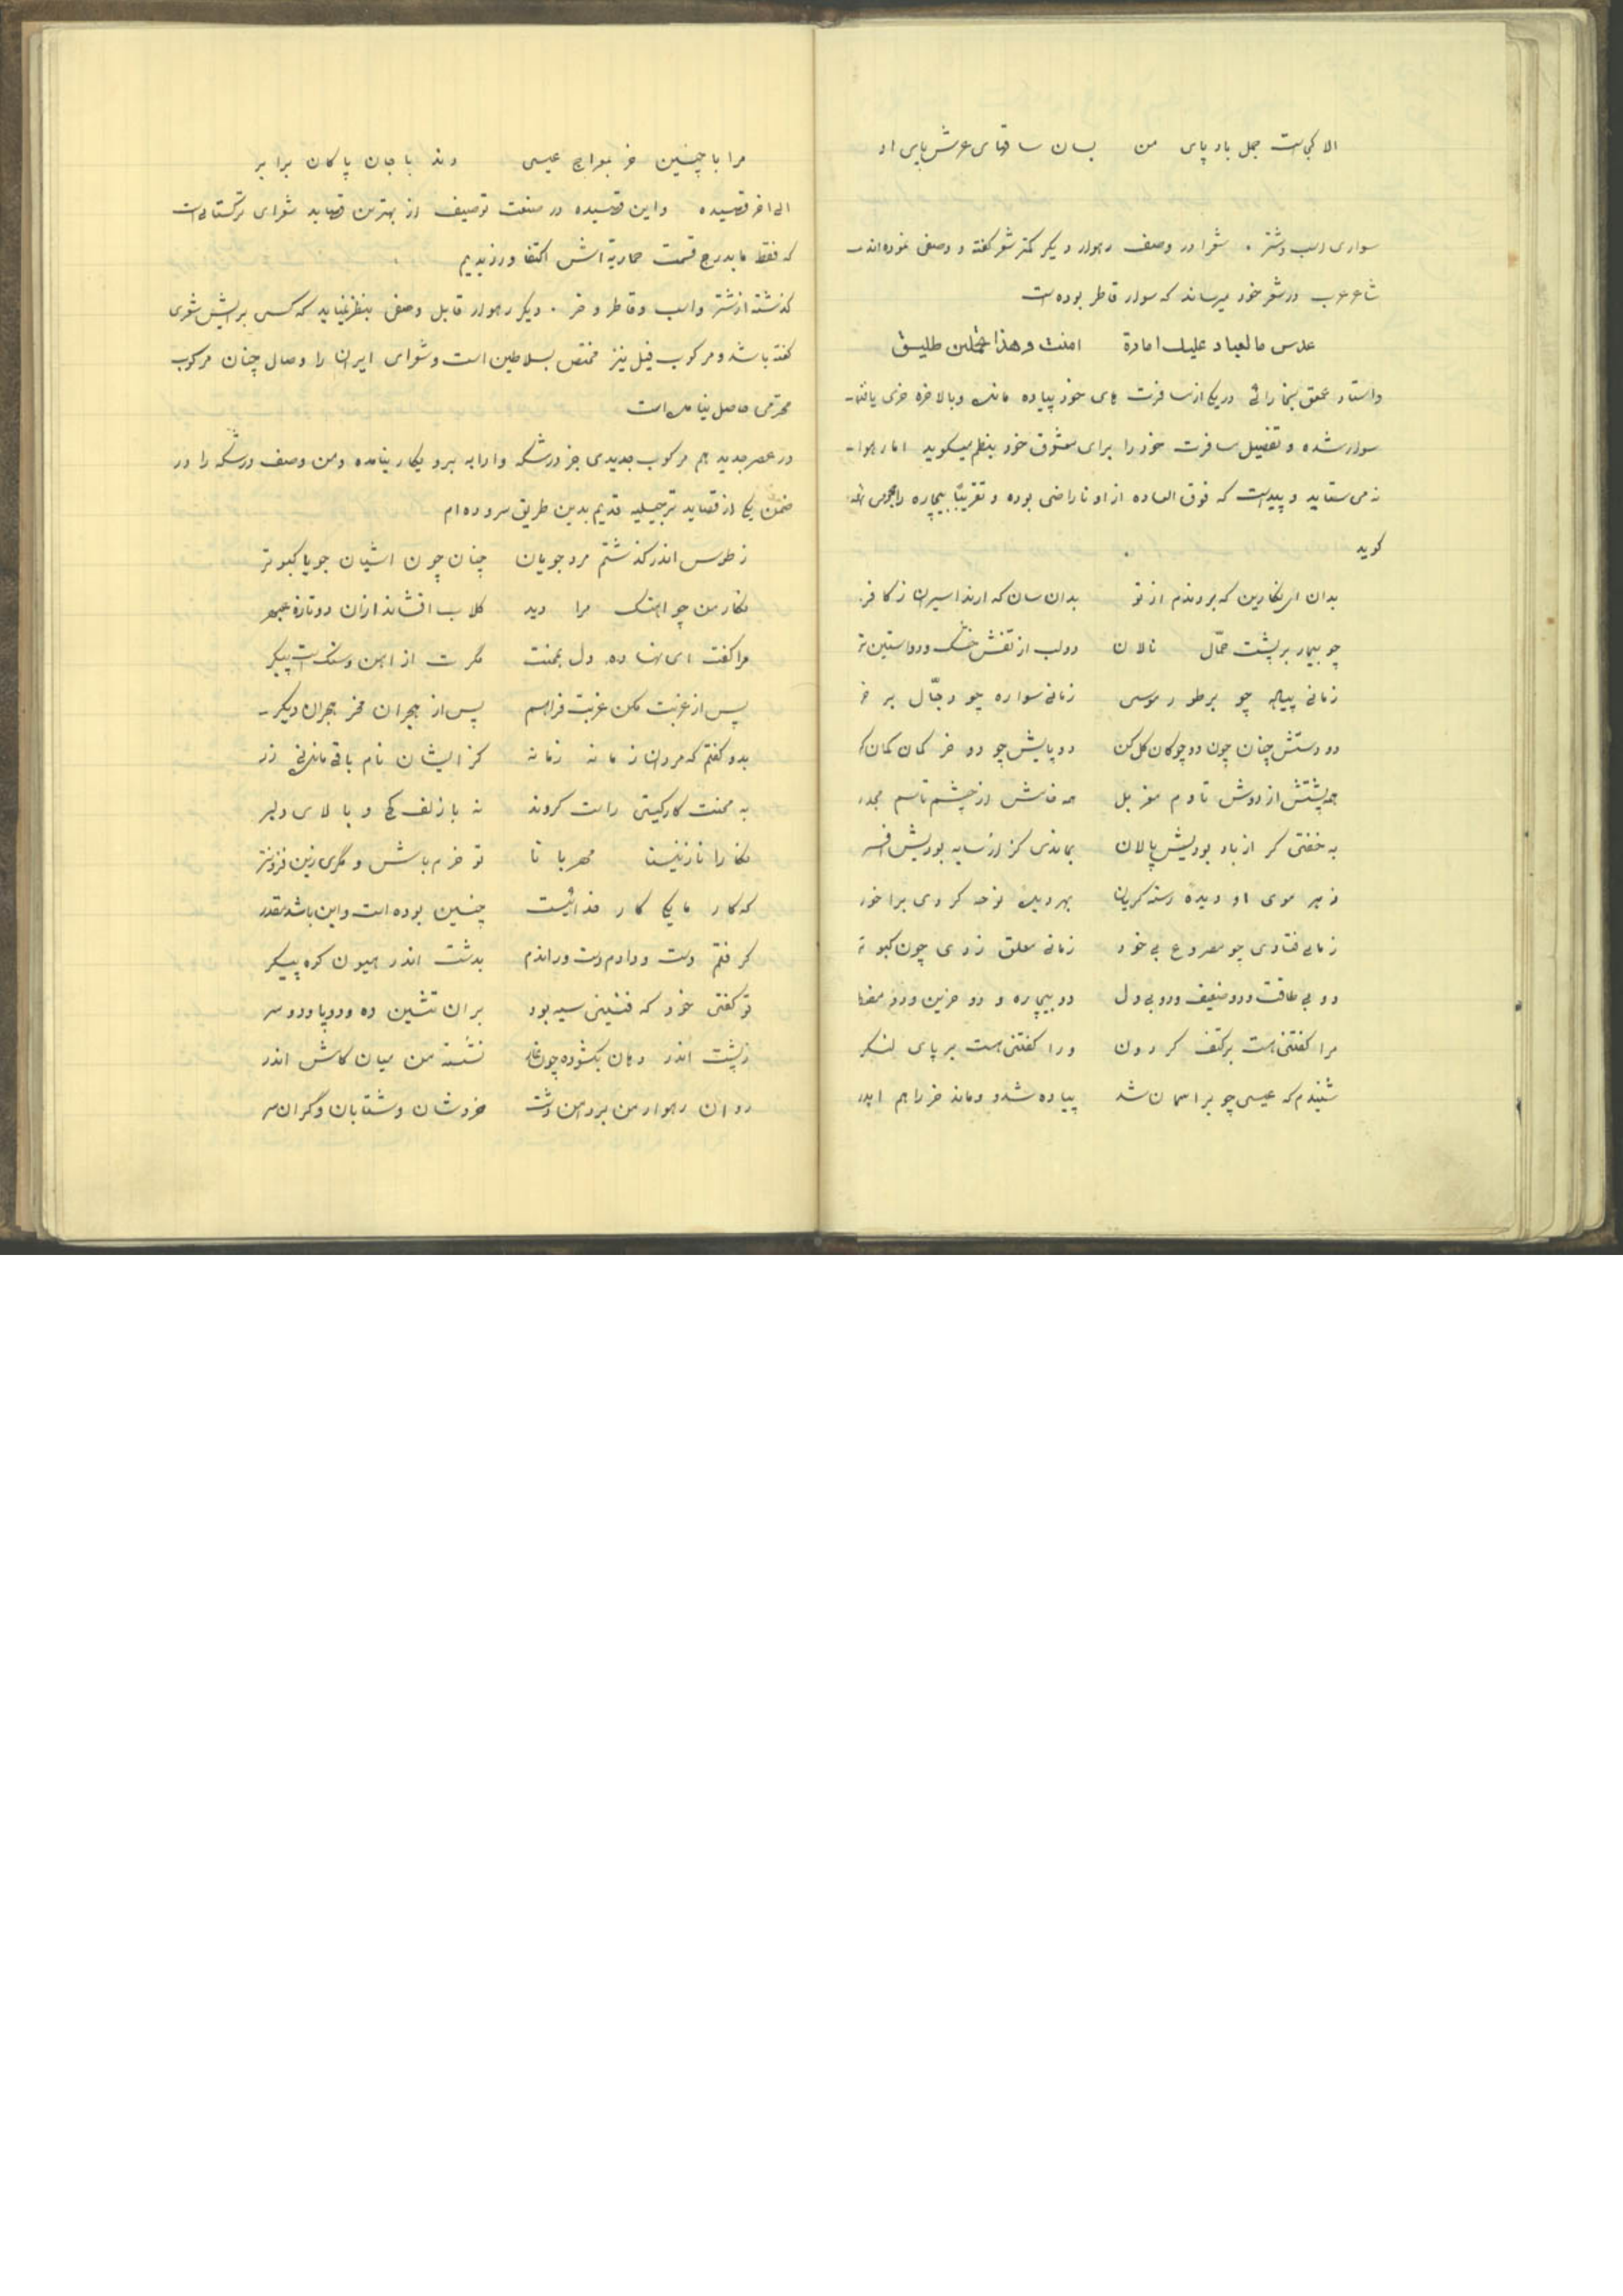 الا کجاست جمل باد پای من    بسان ساقهای عرش پای او
سواری اسب و شتر . شعرا در وصف رهوار دیگر کمتر شعر گفته و وصفی نموده‌اند
شاعر عرب در شعر خود میرساند که سوار قاطر بوده است
عدس ما لعباد علیك امارة    امنت و هذا تحملین طلیق
و استاد عمعق بخارائی در یکی از مسافرت های خود پیاده مانده و بالاخره خری یافته
سوار شده و تفصیل مسافرت خود را برای معشوق خود بنظم میگوید اما رهوار
نمی ستاید و پیداست که فوق العاده از او ناراضی بوده و تقریبًا بیچاره را هجوی
گوید
بدان ای نگارین که بردندم از تو    بدان سان که ارند اسیران ز کافر
چو بیمار بر پشت حمّال نالان    دو لب از تفش خشک و دو استین تر
زمانی پیاده چو بر طور موسی    زمانی سواره چو دجّال بر خر
دو دستش چنان چون دو چوگان گل کن    دو پایش چو دو خر کمان کمان
همه پشتش از دوش تا دم    همه از چشم تا سم مجدر
به خفتی گر از باد بودیش پالان    بماندی گر از سایه بودیش افسر
ز هر موی او دیده رسته گریان    بهر دیده نوحه کردی برا خور
زمانی فتادی چو مصروع بی خود    زمانی معلق زدی چون کبوتر
دو بی طاقت و دو ضعیف و دو بی دل    دو بیچاره و دو حزین و دو مضطر
مرا گفتنی هست بر کتف گردون    ورا گفتنی هست بر پای لنگر
شنیدم که عیسی چو بر اسمان شد    پیاده شد و ماند خر را هم ایدر
مرا با چنین خر بمعراج عیسی    دند با جان پاکان برابر
الی اخر قصیده    و این قصیده در صنعت توصیف از بهترین قصاید شعرای ترکستانی است
که فقط ما بدرج قسمت حماریهٔ اش اکتفا ورزیدیم
گذشته از شتر و اسب و قاطر و خر . دیگر رهوار قابل وصفی بنظر نمیاید که کسی برایش شعری
گفته باشد و مرکوب فیل نیز مختص بسلاطین است و شعرای ایران را وصال چنان مرکوب
محترمی حاصل نیامده است
در عصر جدید هم مرکوب جدیدی جز درشکه و ارابه بیرو بکار نیامده و من وصف درشکه را در
ضمن یکی از قصاید ترجیلیه قدیم بدین طریق سروده ام
ز طوس اندر گذشتم مرد جویان    چنان چون اشیان جویا کبوتر
نگار من چو اهنگ مرا دید    گلاب افشاند از ان دو تازه عبهر
مرا گفت ای نهاده دل بمحنت    مگرت از اهن و سنگ است پیکر
پس از غربت مکن غربت فراهم    پس از هجران مخر هجران دیگر
بدو گفتم که مردان زمانه    کز ایشان نام باقی ماند نی زر
به محنت کار گیتی راست کردند    نه با زلف کج و بالای دلبر
نگارا نازنینا مهربانا    تو خرم باش و مگری زین فزونتر
که کار ما یکی کار خدائیست    چنین بوده است و این باشد مقدر
گرفتم دست و دادم دست و راندم    بدشت اندر هیون کوه پیکر
تو گفتی خود که سیه بود    بر ان تنین ده و دو پا و دو سر
ز پشت اندر دهان بگشوده چون غار    نشسته من میان کامش اندر
روان رهوار من بر دامن دشت    خروشان و شتابان و گران سر